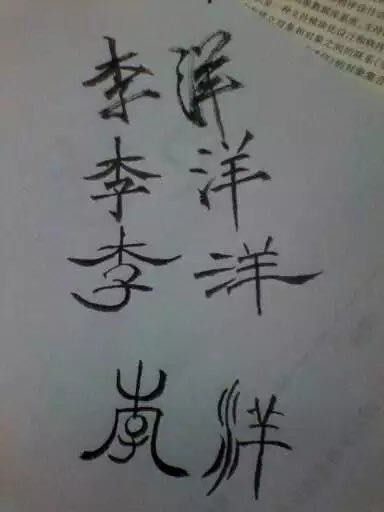 李洋
李洋
李洋
李洋